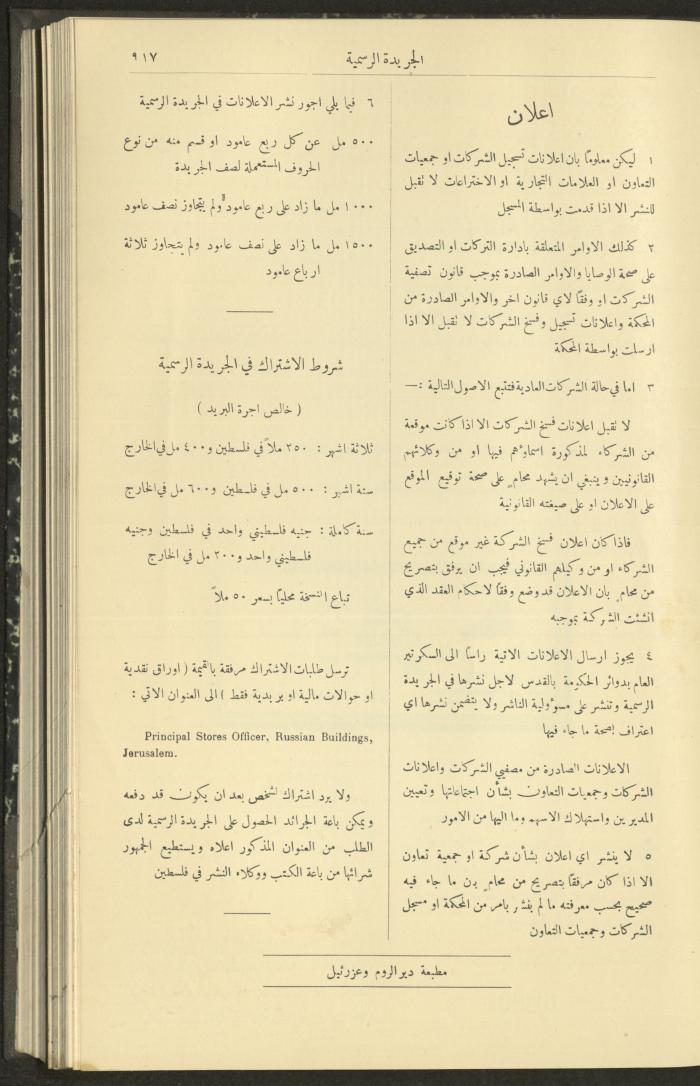 الجريدة الرسمية
٩١٧
اعلان
١ ليكن معلومًا بان اعلانات تسجيل الشركات او جمعيات
التعاون او العلامات التجارية او الاختراعات لا نقبل
للنشر الا اذا قدمت بواسطة المسجل
٢ كذلك الاوامر المتعلقة بادارة التركات او التصديق
على صحة الوصايا والاوامر الصادرة بموجب قانون تصفية
الشركات او وفقًا لاي قانون اخر والاوامر الصادرة من
المحكمة واعلانات تسجيل وفسخ الشركات لا نقبل الا اذا
ارسلت بواسطة المحكمة
٣ اما في حالة الشركات العادية فتتبع الاصول التالية :—
لا نقبل اعلانات فسخ الشركات الا اذا كانت موقعة
من الشركاء المذكورة اسماؤهم فيها او من وكلائهم
القانونيين وينبغي ان يشهد محامٍ على صحة توقيع الموقع
على الاعلان او على صيغته القانونية
فاذا كان اعلان فسخ الشركة غير موقع من جميع
الشركاء او من وكيلهم القانوني فيجب ان يرفق بتصريح
من محامٍ بان الاعلان قد وضع وفقًا لاحكام العقد الذي
انشئت الشركة بموجبه
٤ يجوز ارسال الاعلانات الاتية رأسًا الى السكرتير
العام بدوائر الحكومة بالقدس لاجل نشرها في الجريدة
الرسمية وتنشر على مسؤولية الناشر ولا يتضمن نشرها اي
اعتراف بصحة ما جاء فيها
الاعلانات الصادرة من مصفيي الشركات واعلانات
الشركات وجمعيات التعاون بشأن اجتماعاتها وتعيين
المديرين واستهلاك الاسهم وما اليها من الامور
٥ لا ينشر اي اعلان بشأن شركة او جمعية تعاون
الا اذا كان مرفقًا بتصريح من محامٍ بان ما جاء فيه
صحيح بحسب معرفته ما لم ينشر بامر من المحكمة او مسجل
الشركات وجمعيات التعاون
٦ فيما يلي اجور نشر الاعلانات في الجريدة الرسمية
٥٠٠ مل عن كل ربع عامود او قسم منه من نوع
الحروف المستعملة لصف الجريدة
١٠٠٠ مل ما زاد على ربع عامود ولم يتجاوز نصف عامود
١٥٠٠ مل ما زاد على نصف عامود ولم يتجاوز ثلاثة
ارباع عامود
شروط الاشتراك في الجريدة الرسمية
( خالص اجرة البريد )
ثلاثة اشهر : ٢٥٠ ملاً في فلسطين و ٤٠٠ مل في الخارج
ستة اشهر : ٥٠٠ مل في فلسطين و ٦٠٠ مل في الخارج
سنة كاملة : جنيه فلسطيني واحد في فلسطين وجنيه
فلسطيني واحد و ٢٠٠ مل في الخارج
تباع النسخة محليًا بسعر ٥٠ ملاً
ترسل طلبات الاشتراك مرفقة بالقيمة ( اوراق نقدية
او حوالات مالية او بريدية فقط ) الى العنوان الاتي :
Principal Stores Officer, Russian Buildings,
Jerusalem.
ولا يرد اشتراك لشخص بعد ان يكون قد دفعه
ويمكن باعة الجرائد الحصول على الجريدة الرسمية لدى
الطلب من العنوان المذكور اعلاه ويستطيع الجمهور
شرائها من باعة الكتب ووكلاء النشر في فلسطين
مطبعة دير الروم وعزرئيل